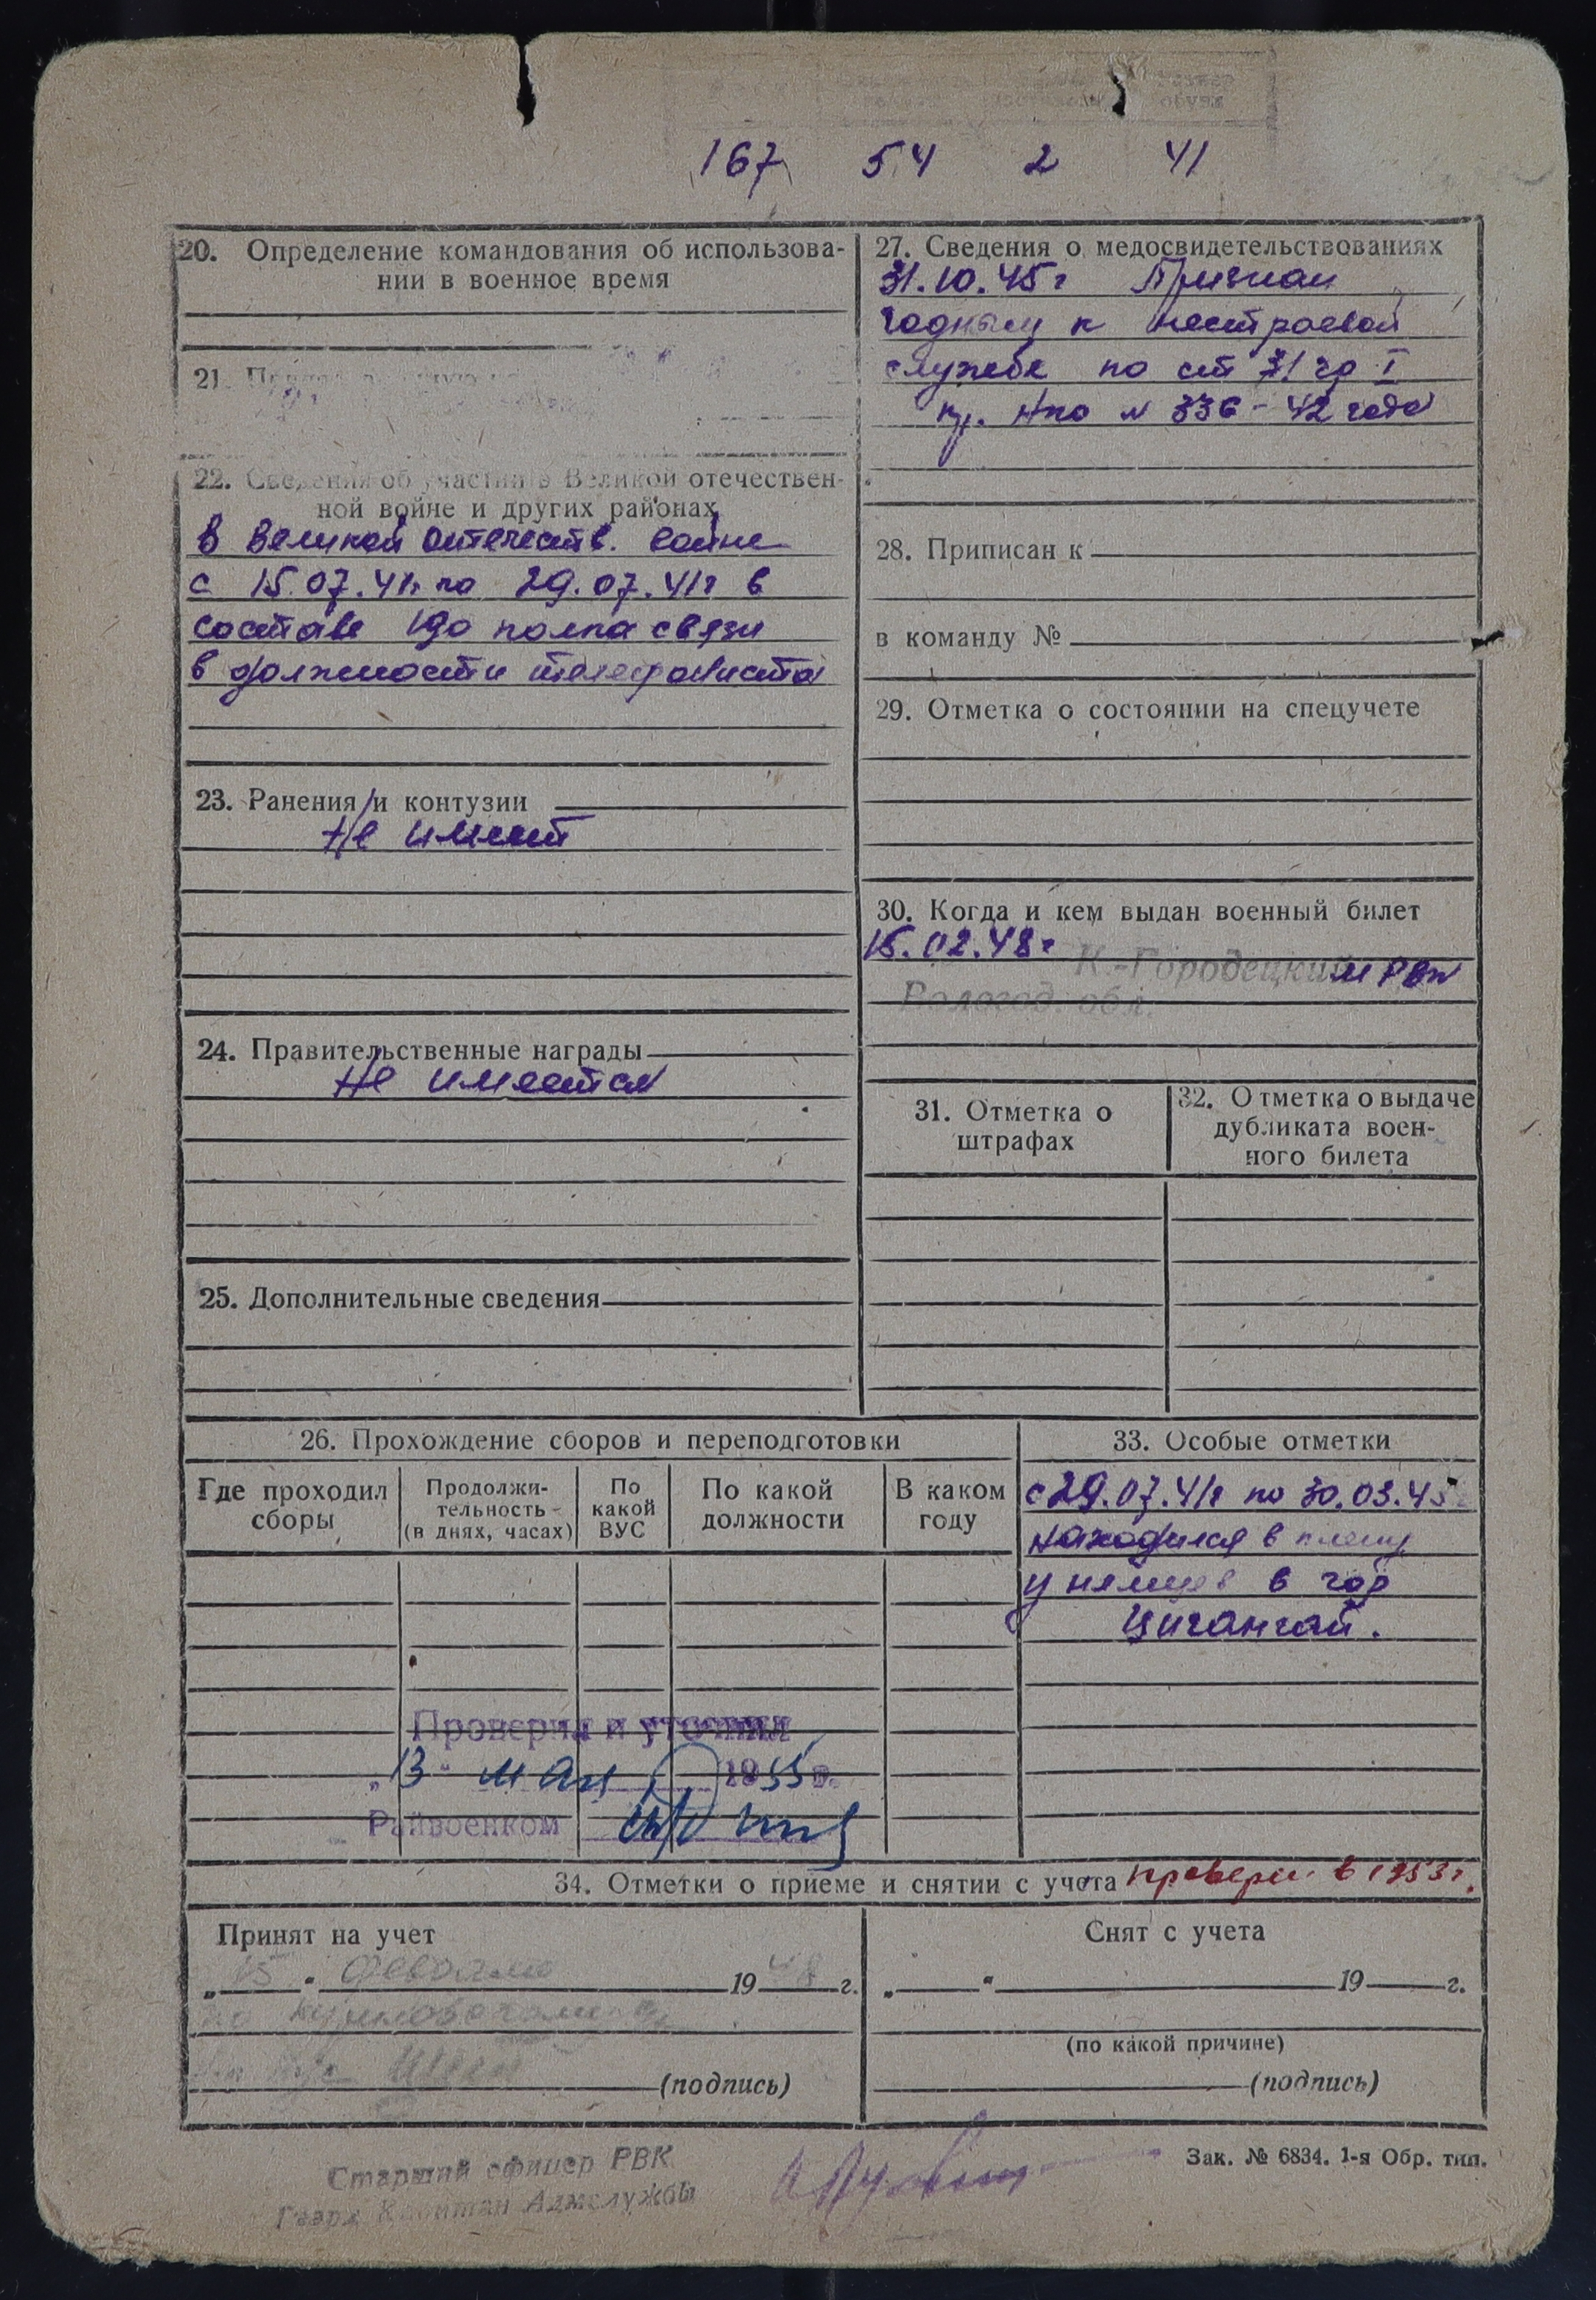 167 54 2 41
20. Определение командования об использова-
нии в военное время
21.
22. Сведения об участии в Великой отечествен-
ной войне и других районах
в Великой Отечеств. войне
с 15.07.41г по 29.07.41г в
составе 190 полка связи
в должности телефониста
23. Ранения и контузии
Не имеет
24. Правительственные награды
Не имеется
25. Дополнительные сведения
27. Сведения о медосвидетельствованиях
31.10.45г Признан
годным к нестроевой
службе по ст 31 гр I
пр. Нко № 336-42 года
28. Приписан к
в команду №
29. Отметка о состоянии на спецучете
30. Когда и кем выдан военный билет
15.02.48г К.-Городецким РВк
Вологод. обл.
31. Отметка о
штрафах
32. Отметка о выдаче
дубликата воен-
ного билета
26. Прохождение сборов и переподготовки
Где проходил
сборы
Продолжи-
тельность
(в днях, часах)
По
какой
ВУС
По какой
должности
В каком
году
Проверил и уточнил
„13" мая 1955г.
Райвоенком
33. Особые отметки
с 29.07.41г по 30.03.45г
находился в плену
у немцев в гор
Цигангай.
34. Отметки о приеме и снятии с учета провере. в 1953г.
Принят на учет
„15" февраля 1948 г.
(подпись)
Снят с учета
„ " 19 г.
(по какой причине)
(подпись)
Старший офицер РВК
Гвард. Капитан Адмслужбы
Зак. № 6834. 1-я Обр. тип.